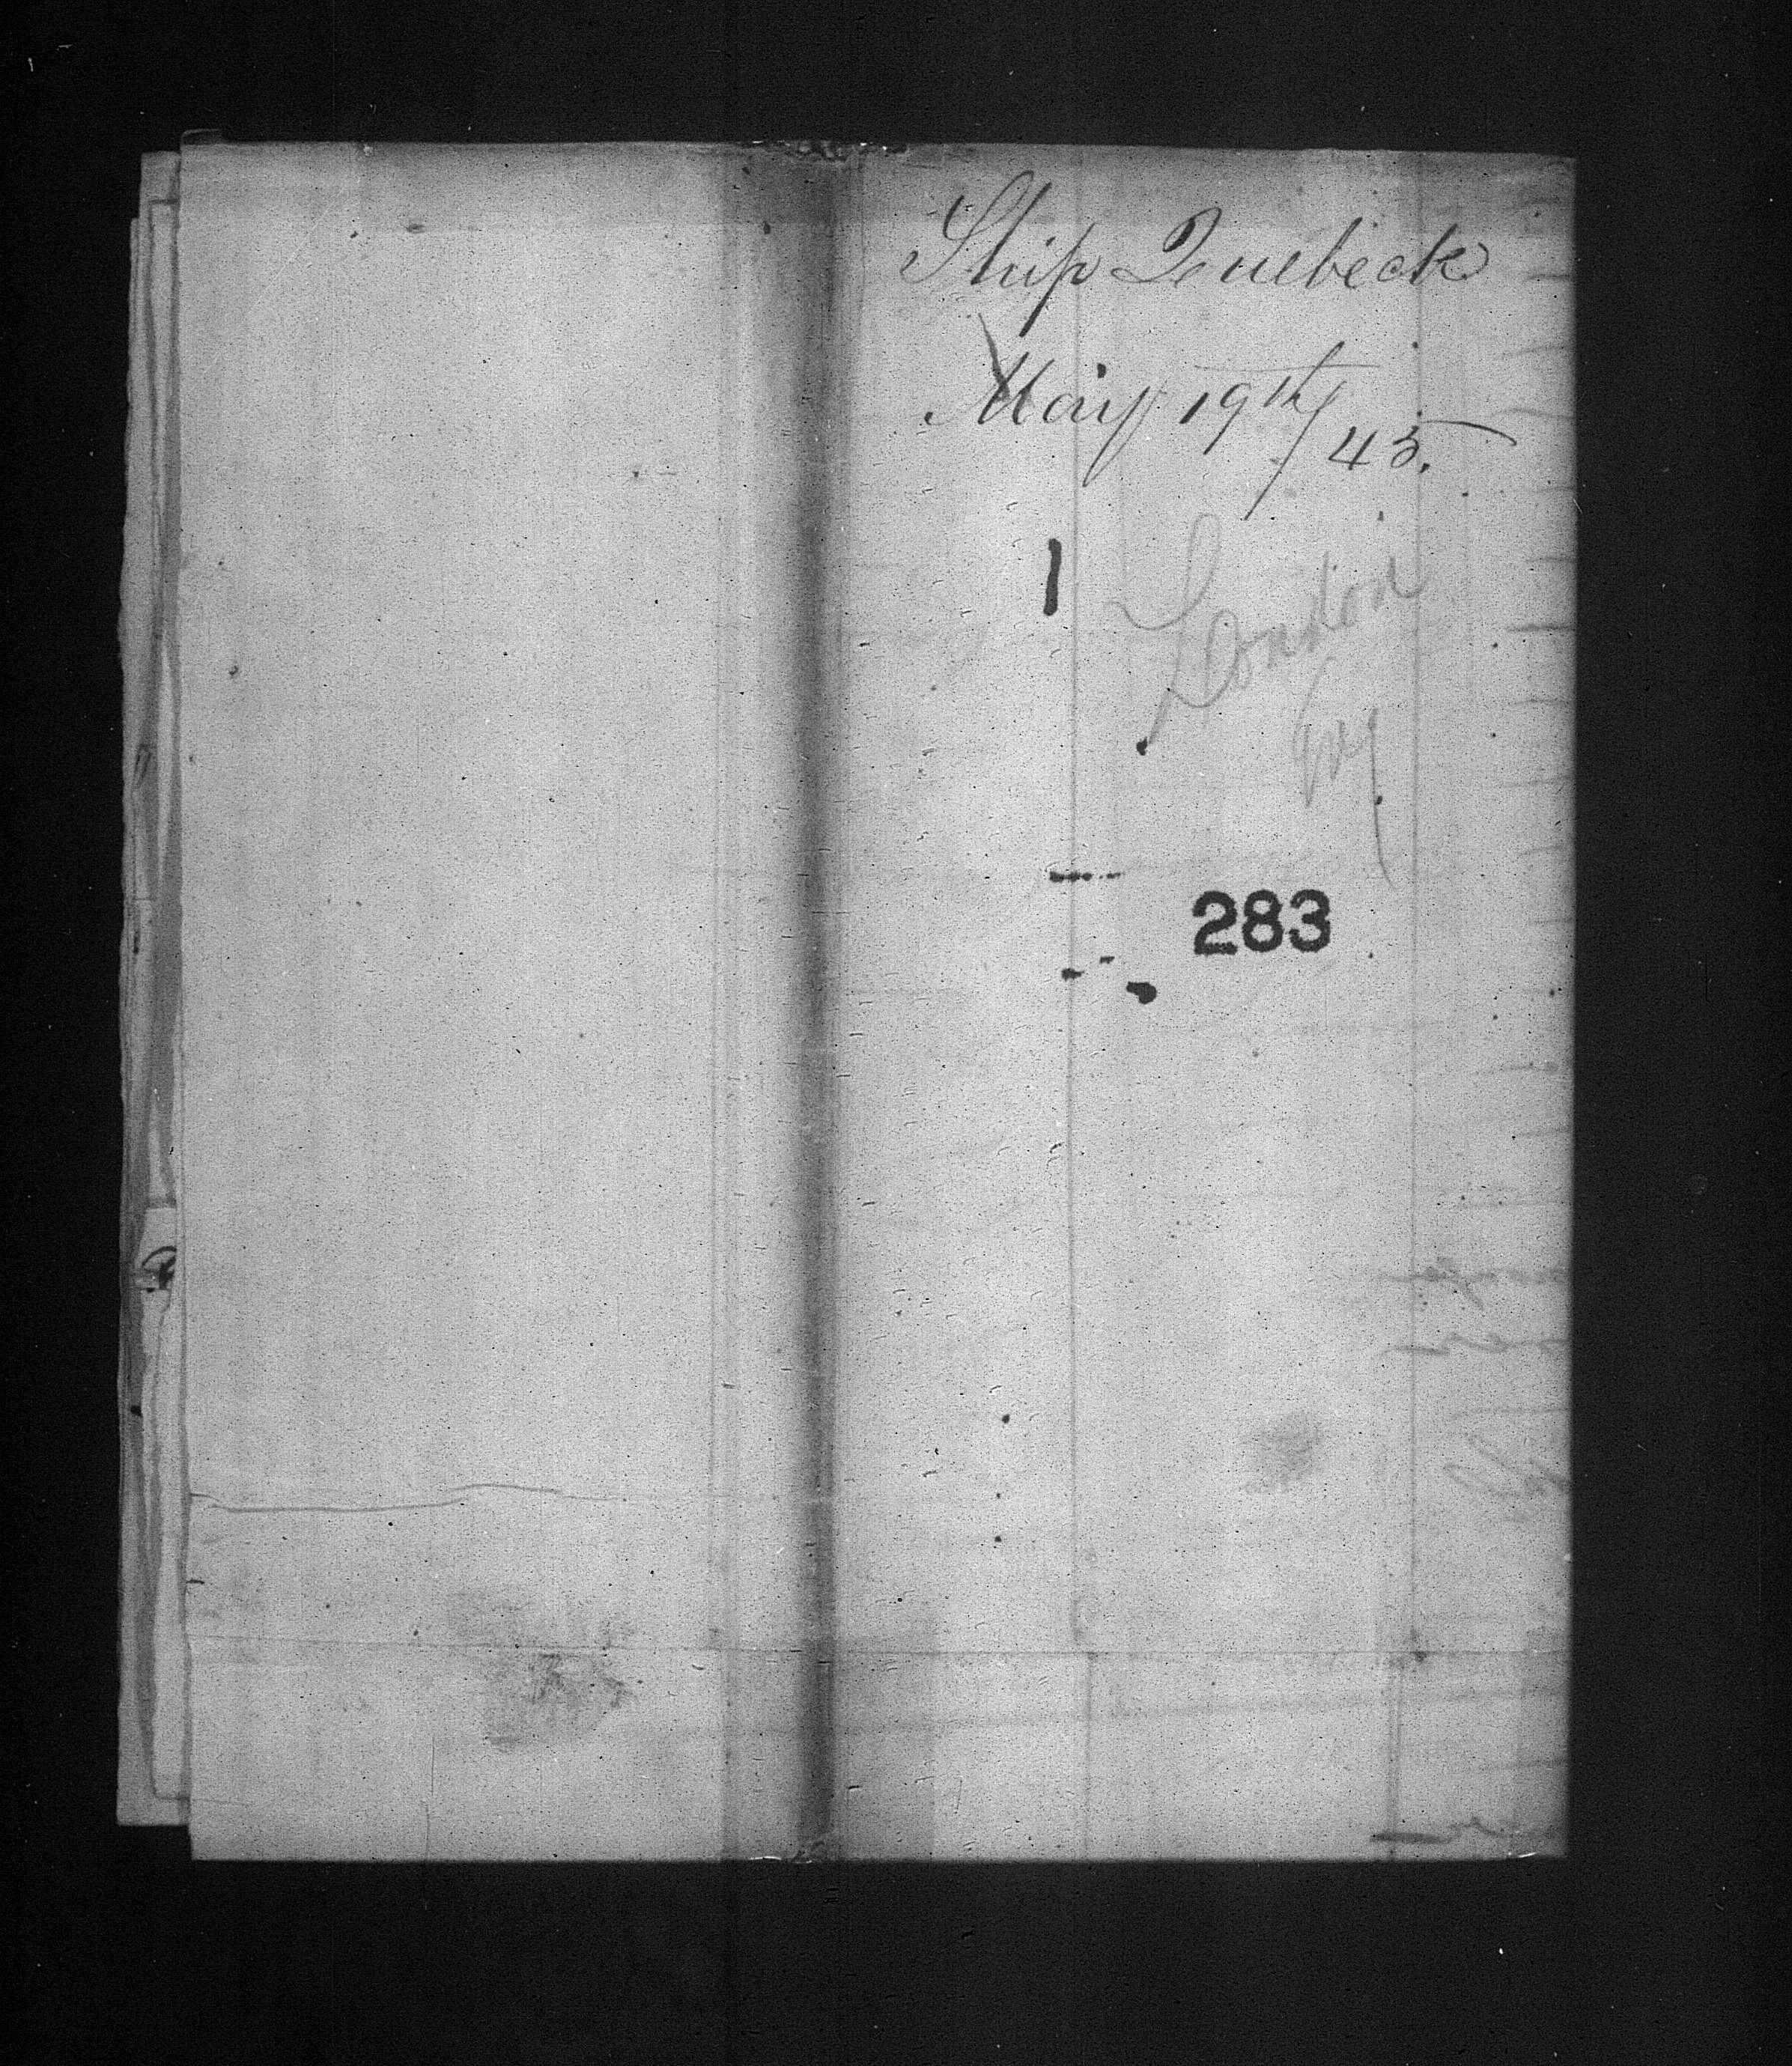 Ship Quebeck
May 19th/43.
1
London
Eng
283